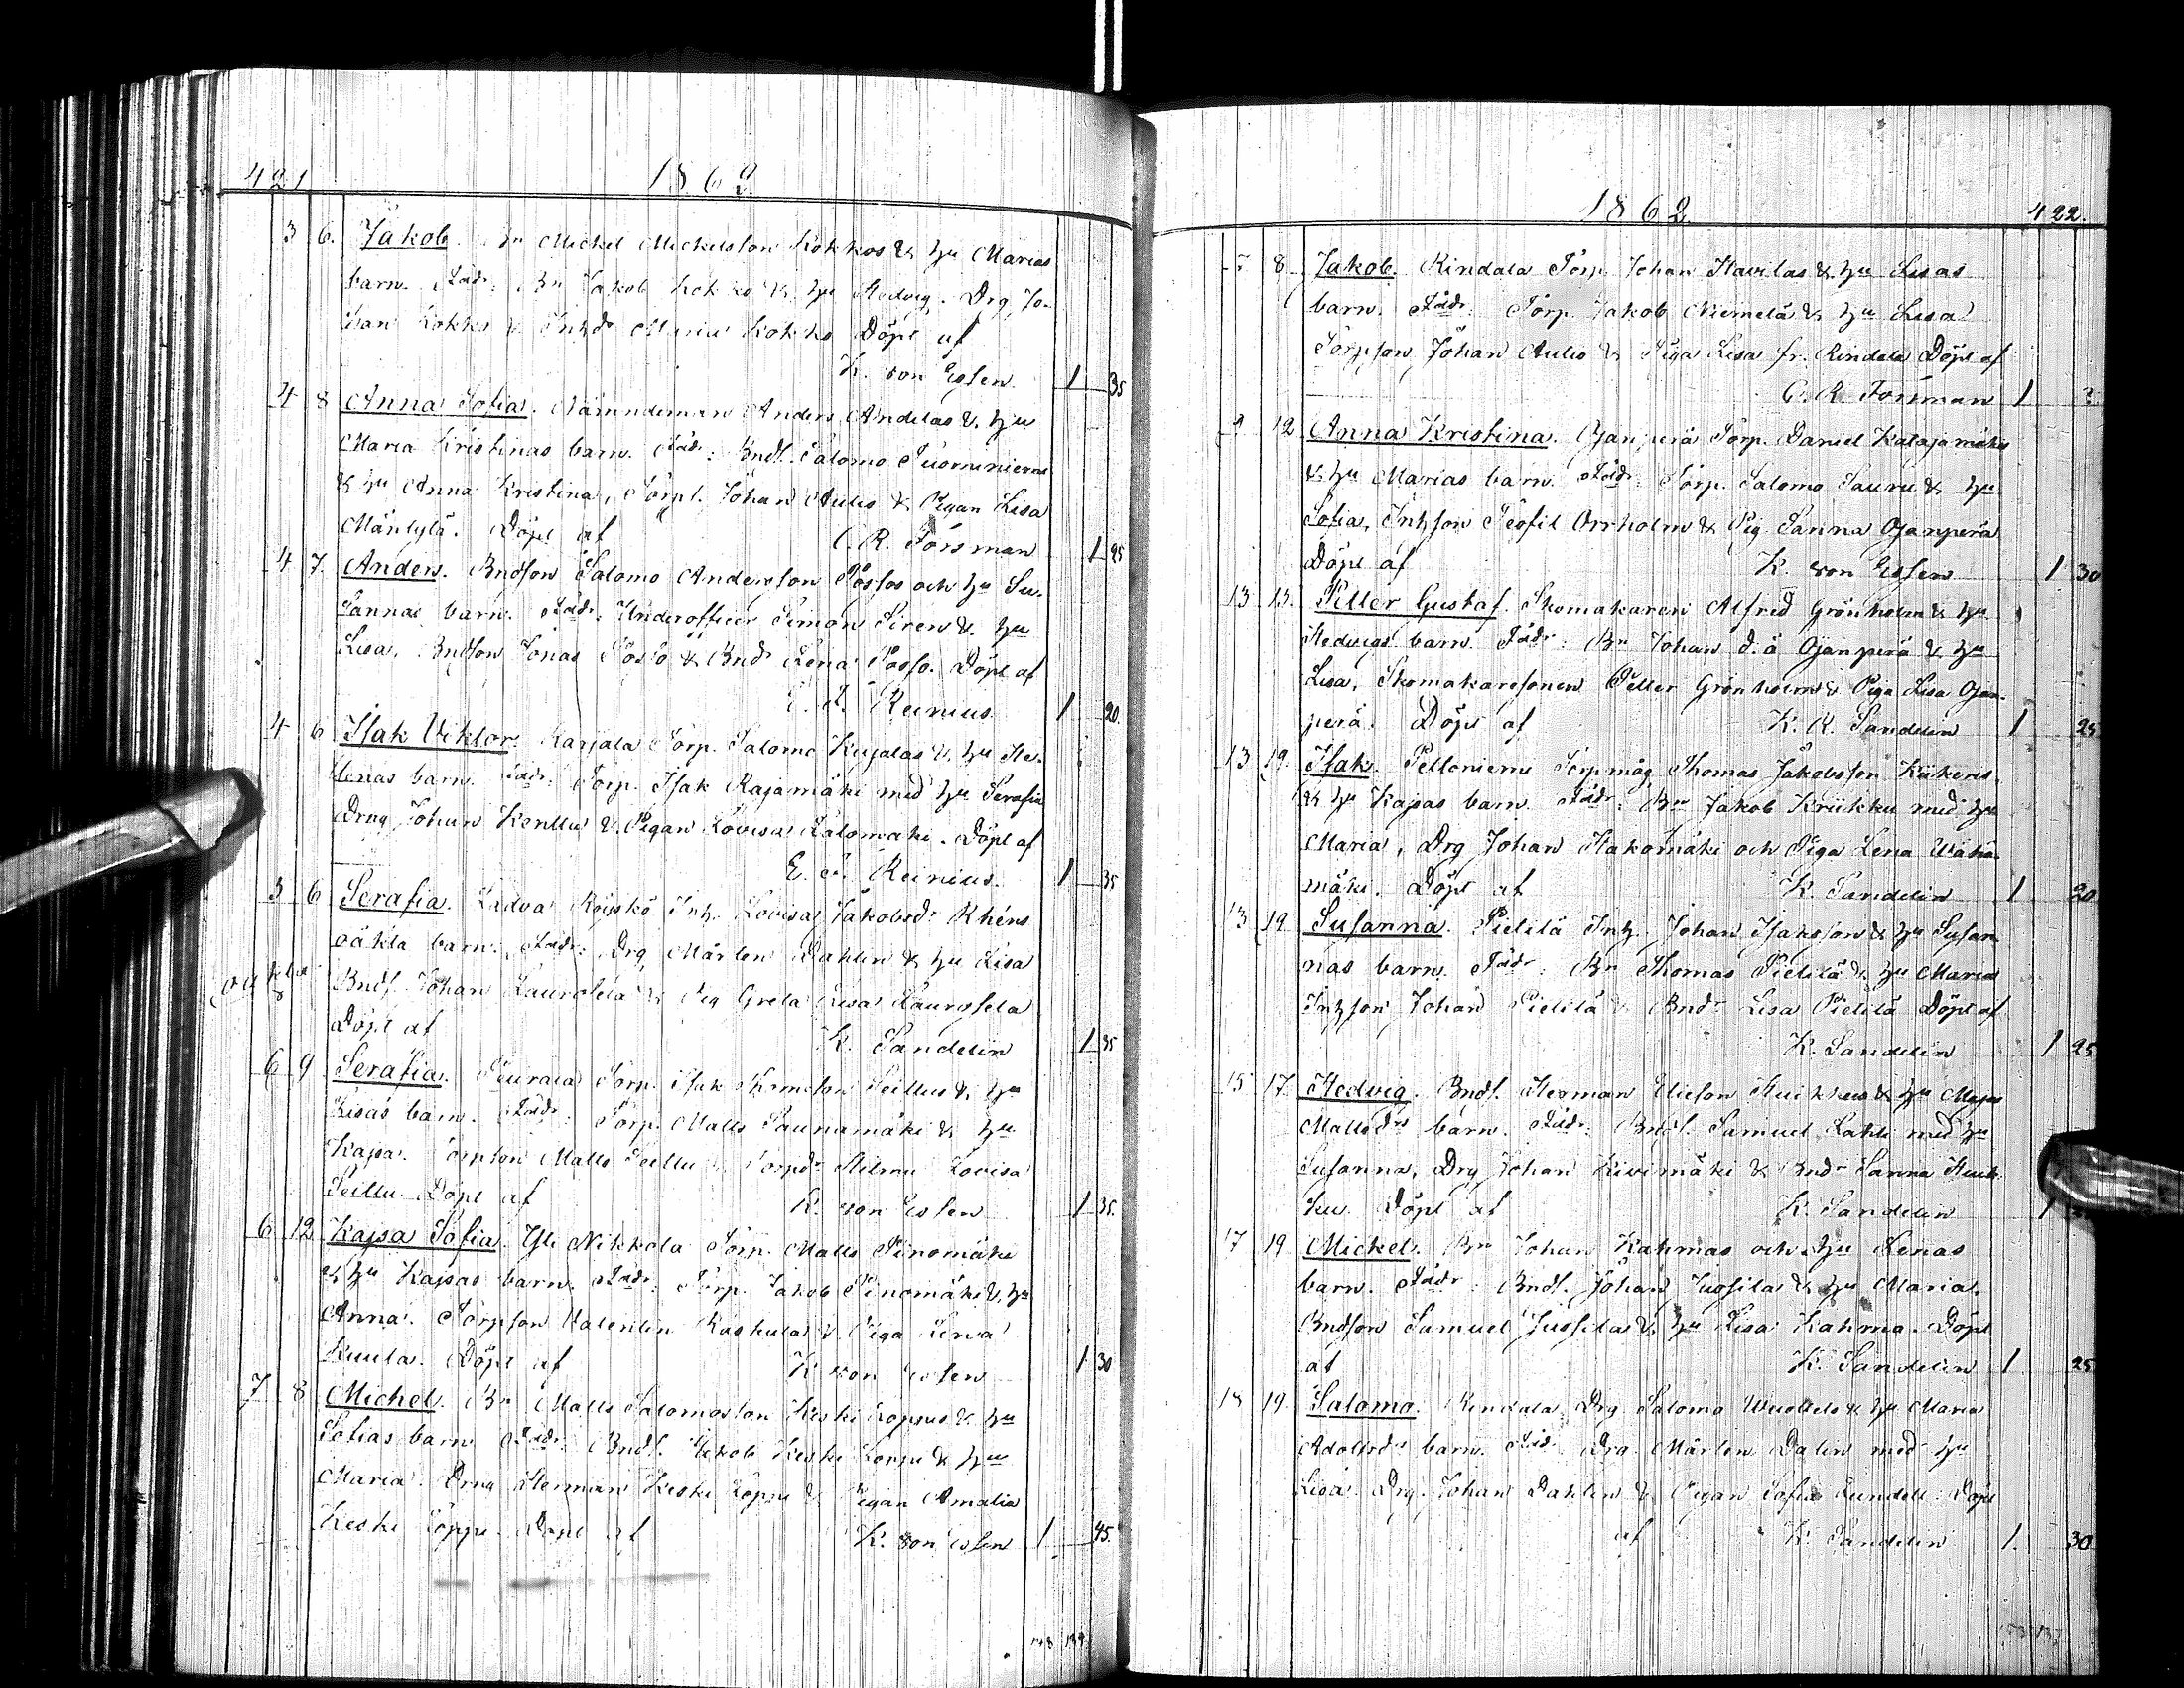 421 1862
3 6. Jakob. Bn Mickel Mickelsson Kokkos & hu Marias
barn. Fadr: Bn Jakob Kokko & hu Hedvig. Drg Jo-
han Kokko & Inhdr Maria Kokko Döpt af
K. von Essen 1 35
4 8 Anna Sofia. Nämndeman Anders Andelas & hu
Maria Kristinas barn. Fadr: Bndf. Salomo Tuorinniemi
& hu Anna Kristina, Torpf. Johan Aulis & Pigan Lisa
Mäntylä. Döpt af C. R. Forsman 1 25
4 7. Anders. Bndson Salomo Andersson Possos och hu Su-
sannas barn. Fadr: Underofficer Simon Siren & hu
Lisa, Bndson Jonas Posso & Bndr Lena Posso. Döpt af
E. J. Reinius 1 20.
4 6 Isak Viktor. Karjala Torp. Salomo Kujalas & hu He-
lenas barn. Fadr: Torp. Isak Rajamäki med hu Serafia
Drng Johan Kenttu & Pigan Lovisa Salomaki. Döpt af
E. J. Reinius. 1 35
5 6 Serafia. Ladva Röyskö Inh. Lovisa Jakobsdr
oäkta barn. Fadr: Drg Mårten Dahlin & hu Lisa
oäkta Bndf. Johan Laurosela & Pig Greta Lisa Laurosela
Döpt af K. Sandelin 1 35
6 9 Serafia. Torp. Isak Thomsson Seillus & hu
Lisas barn. Fadr: Torp. Matts Saunamäki & hu
Kajsa. Torpson Matts Seillu & Torpdr Hilma Lovisa
Seillu Döpt af K. von Essen 1 35.
6 12 Kajsa Sofia. Yli Nikkola Torp. Matts Pinomäki
& hu Kajsas barn. Fadr: Torp. Jakob Pinomäki & hu
Anna. Torpson Valentin Raskula & Piga Lena
Kuula. Döpt af K von Essen 1 30
7 8 Michel. Bn Matts Salomosson Keski Loppis & hu
Sofias barn Fadr: Bndf. Jakob Keski Loppi & hu
Maria. Drng Herman Keski Loppi & Pigan Amalia
Keski Loppi. Döpt af K. von Essen 1 45.
1862 422.
7 8 Jakob. Rindala Torp. Johan Havilas & hu Lisas
barn. Fadr: Torp. Jakob Niemelä & hu Lisa
Torpson Johan Aulis & Piga Lisa fr. Rindala Döpt af
C. R. Forsman 1
9 12 Anna Kristina. Ojanperä Torp. Daniel Katajamäkis
& hu Marias barn. Fadr: Torp. Salomo Sauru & hu
Sofia, Inhson Teofil Orrholm & Pig Sanna Ojanperä
Döpt af K. von Essen 1 30
13 15. Petter Gustaf. Skomakaren Alfred Grönholm & hu
Hedvigs barn. Fadr: Bn Johan d.ä Ojanperä & hu
Lisa, Skomakaresonen Petter Grönholm & Piga Lisa Ojan-
perä. Döpt af K. R. Sandelin 1 25
13 19. Isak. Peltoniemi Torpmåg Thomas Jakobsson
& hu Kajsas barn. Fadr: Bn Jakob Kriikku med hu
Maria, Drg Johan Hakomäki och Piga Lena Wähä-
mäki. Döpt af K. Sandelin 1 20
13 19 Susanna. Pietilä Inh. Johan Isaksson & hu Susan-
nas barn. Fadr: Bn Thomas Pietilä & hu Maria
Inhson Johan Pietilä & Bndr Lisa Pietilä Döpt af
K. Sandelin 1 25
15 17. Hedvig. Bndf. Herman Eliesson Huikkus & hu Maja
Mattsdrs barn. Fadr: Bndf. Samuel Lahti med hu
Susanna, Drg Johan Kivimäki & Bndr Sanna Huik-
ku Döpt af K. Sandelin 1
17 19 Mickel. Bn Johan Kahmas och hu Lenas
barn. Fadr: Bndf. Johan Jussilas & hu Maria.
Bndson Samuel Jussilas & hu Lisa Kahma. Döpt
af K. Sandelin 1 25
18 19. Salomo. Rindala Drg Salomo & hu Maria
Adolfsdr barn. Fad: Drg. Mårten Dalin med hu
Lisa. Drg. Johan Dahlin & Pigan Sofia Lundell. Döpt
af K. Sandelin 1. 30